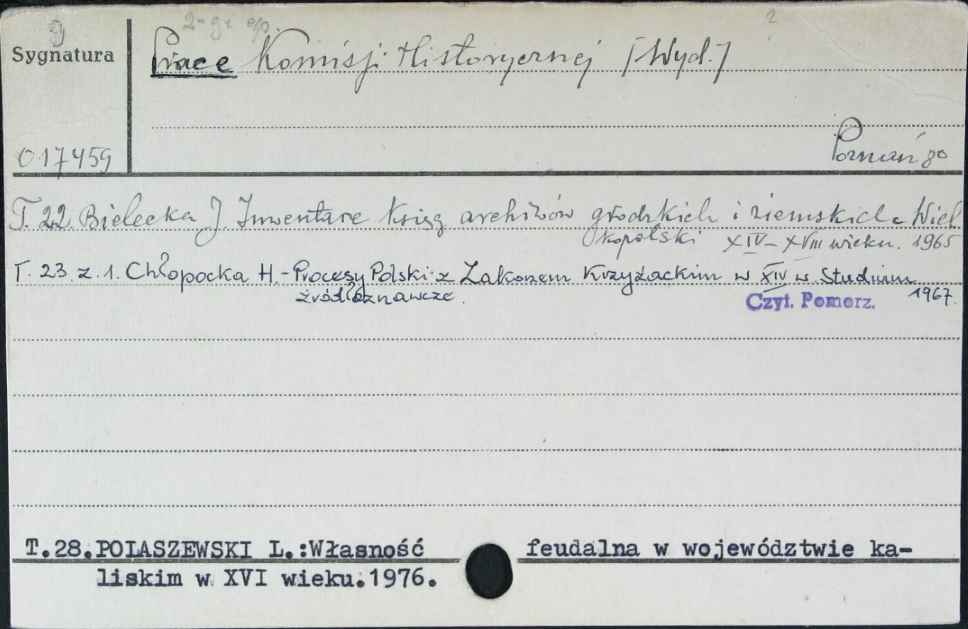 2-g. e/p. 2
Sygnatura
Prace Komisji Historycznej [Wyd.]
O 17459
Poznań go
T. 22. Bielecka J. Inwentarze ksiąg archiwów grodzkich i ziemskich Wiel
kopolski XIV–XVIII wieku. 1965
T. 23. z. 1. Chłopocka H. - Procesy Polski z Zakonem Krzyżackim w XIV w. Studium
źródłoznawcze. 1967.
Czyt. Pomorz.
T.28.POLASZEWSKI L.:Własność feudalna w województwie ka-
liskim w XVI wieku.1976.